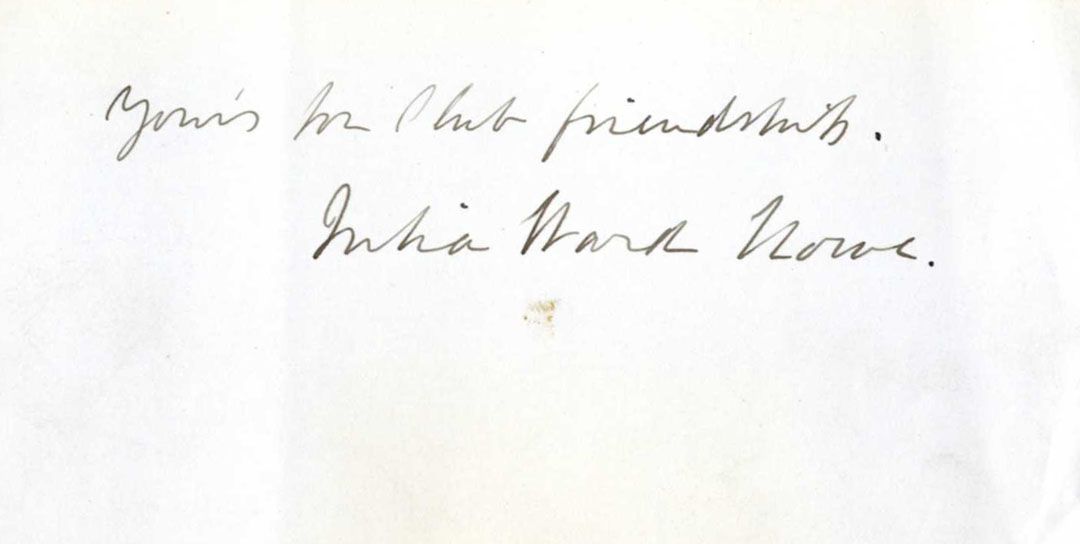 Your's for Club friendship.
Julia Ward Howe.